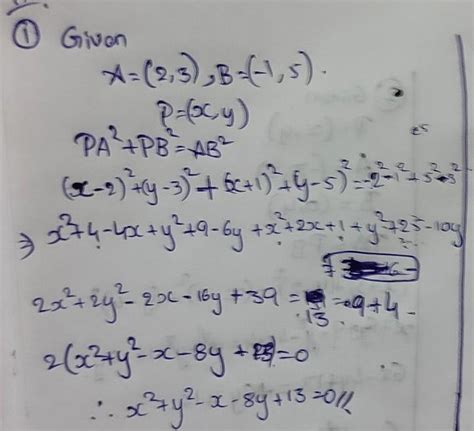 ① Given
A=(2,3), B=(-1,5).
P=(x,y)
PA²+PB²=AB²
(x-2)²+(y-3)²+(x+1)²+(y-5)²=-2²-1²+5²-3²
⇒ x²+4-4x+y²+9-6y+x²+2x+1+y²+25-10y
2x²+2y²-2x-16y+39 = 13 =9+4
2(x²+y²-x-8y+13)=0
∴ x²+y²-x-8y+13=0//